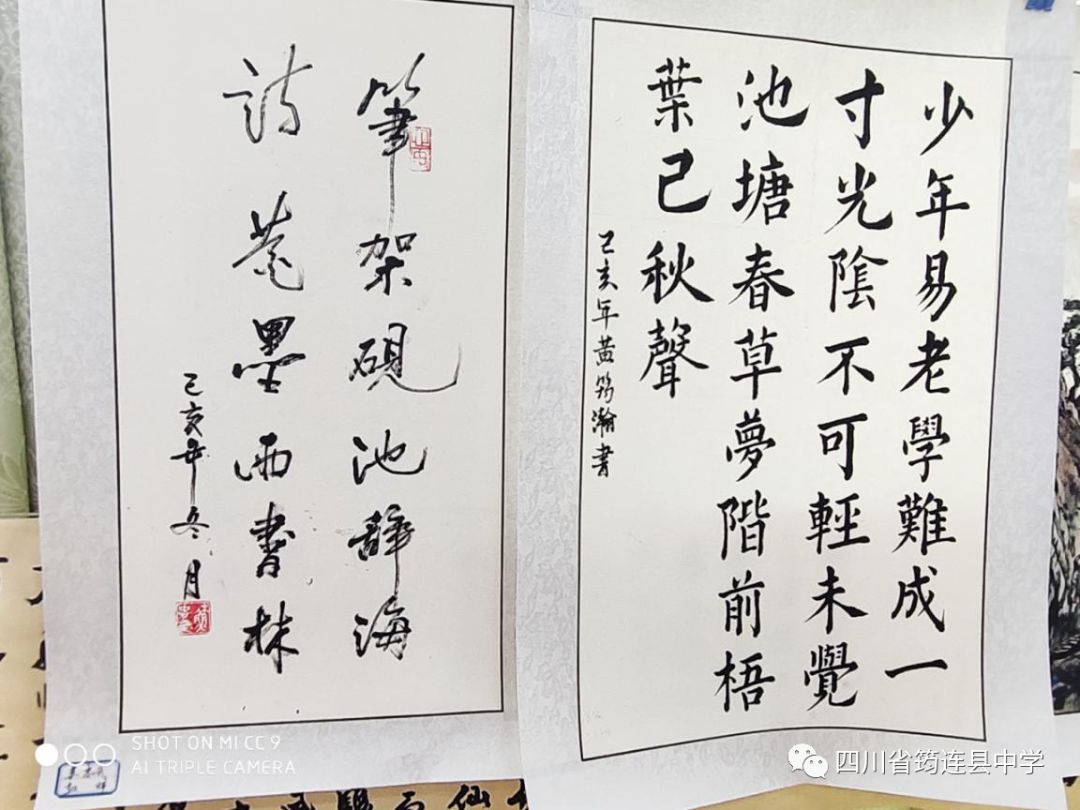 少年易老學難成一
寸光陰不可輕未覺
池塘春草夢階前梧
葉已秋聲
己亥年黄筠瀚書
筆架硯池辭海
詩卷墨雨書林
己亥年冬月
SHOT ON MI CC 9
AI TRIPLE CAMERA
四川省筠连县中学